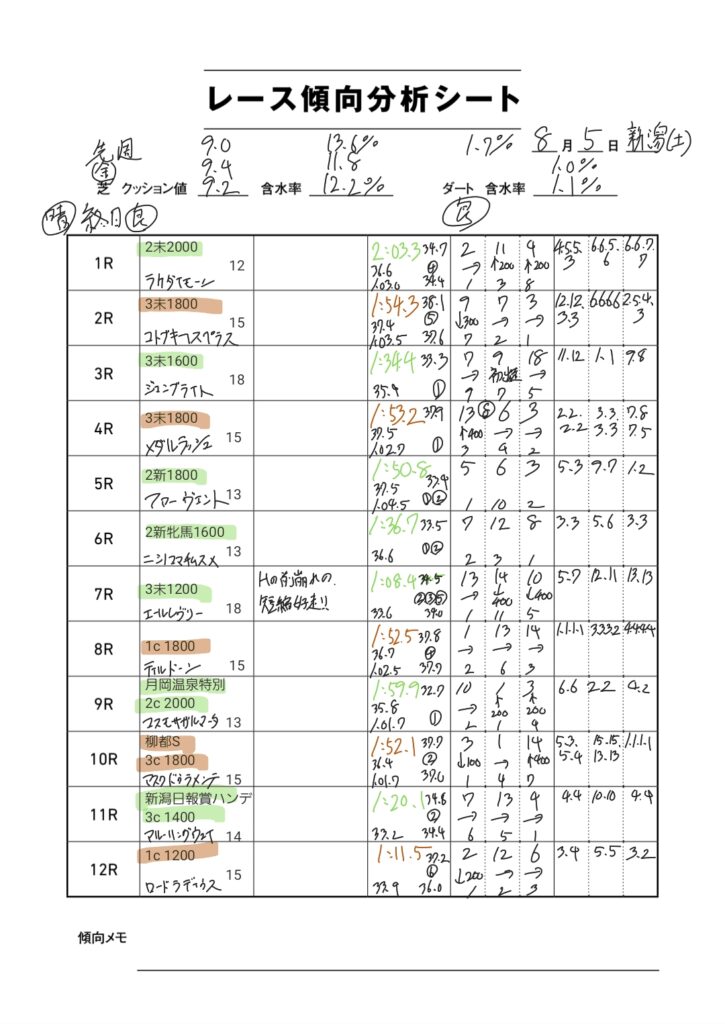 レース傾向分析シート
先週 9.0 13.6% 1.7% 8月5日 新潟(土)
金 9.4 11.8 1.0%
芝 クッション値 9.2 含水率 12.2% ダート 含水率 1.1%
晴 終日良 良
1R 2未2000 12 2:03.3 34.7 2 11 9 4.5.5.3 6.6.5.6 6.6.7.7
36.6 ④ → ↑200 ↑200
ラケダイモーン 1.03.0 34.4 1 3 8
2R 3未1800 15 1:54.3 38.1 9 7 3 12.12.3.3 6666 2.5.4.3
37.4 ⑤ ↓300 → →
コトブキアースプラス 1:03.5 37.6 7 2 1
3R 3未1600 18 1:34.4 33.3 7 9 18 11.12 1.1 9.8
→ 初出走 →
ジュンブライト 35.4 ① 9 7 5
4R 3未1800 15 1:53.2 37.9 13 ⑧ 6 3 2.2.2.2 3.3.3.3 7.8.7.5
37.5 ↑400 → →
メダルラッシュ 1.02.7 ① 3 9 2
5R 2新1800 13 1:50.8 33.4 5 6 3 5.3 9.7 1.2
37.5
ファーヴェント 1.04.5 ①② 1 10 2
6R 2新牝馬1600 13 1:36.7 33.5 7 12 8 3.3 5.6 3.3
ニシノコマチムスメ 36.6 ①② 2 3 1
7R 3未1200 18 Hの前崩れの、短縮好走!! 1:08.4 34.5 13 14 10 5.7 12.11 13.13
→ ↓400 ↓400
エールレヴリー 33.6 34.0 1 11 5
8R 1c 1800 15 1:52.5 37.8 1 13 14 1.1.1.1 3.3.3.2 4.4.4.4
36.7 ④ → → →
ティルドーン 1.02.5 37.7 2 6 3
9R 月岡温泉特別
2c 2000 13 1:59.9 32.7 10 1 3 6.6 2.2 4.2
35.8 → ↑200 ↑200
コスモサガルマータ 1.01.7 ① 2 1 9
10R 柳都S
3c 1800 15 1:52.1 37.7 3 1 14 5.3.5.4 15.15.13.13 1.1.1.1
36.4 ② ↓100 → ↑400
マスクドゥラメンテ 1.01.7 37.0 1 4 7
11R 新潟日報賞ハンデ
3c 1400 14 1:20.1 34.8 7 13 4 4.4 10.10 4.4
② → → →
マルーリングウェイ 33.2 34.4 6 5 1
12R 1c 1200 15 1:11.5 37.2 2 12 6 3.4 5.5 3.2
⑥ ↓200 → →
ロードラディウス 33.9 36.0 1 2 3
傾向メモ